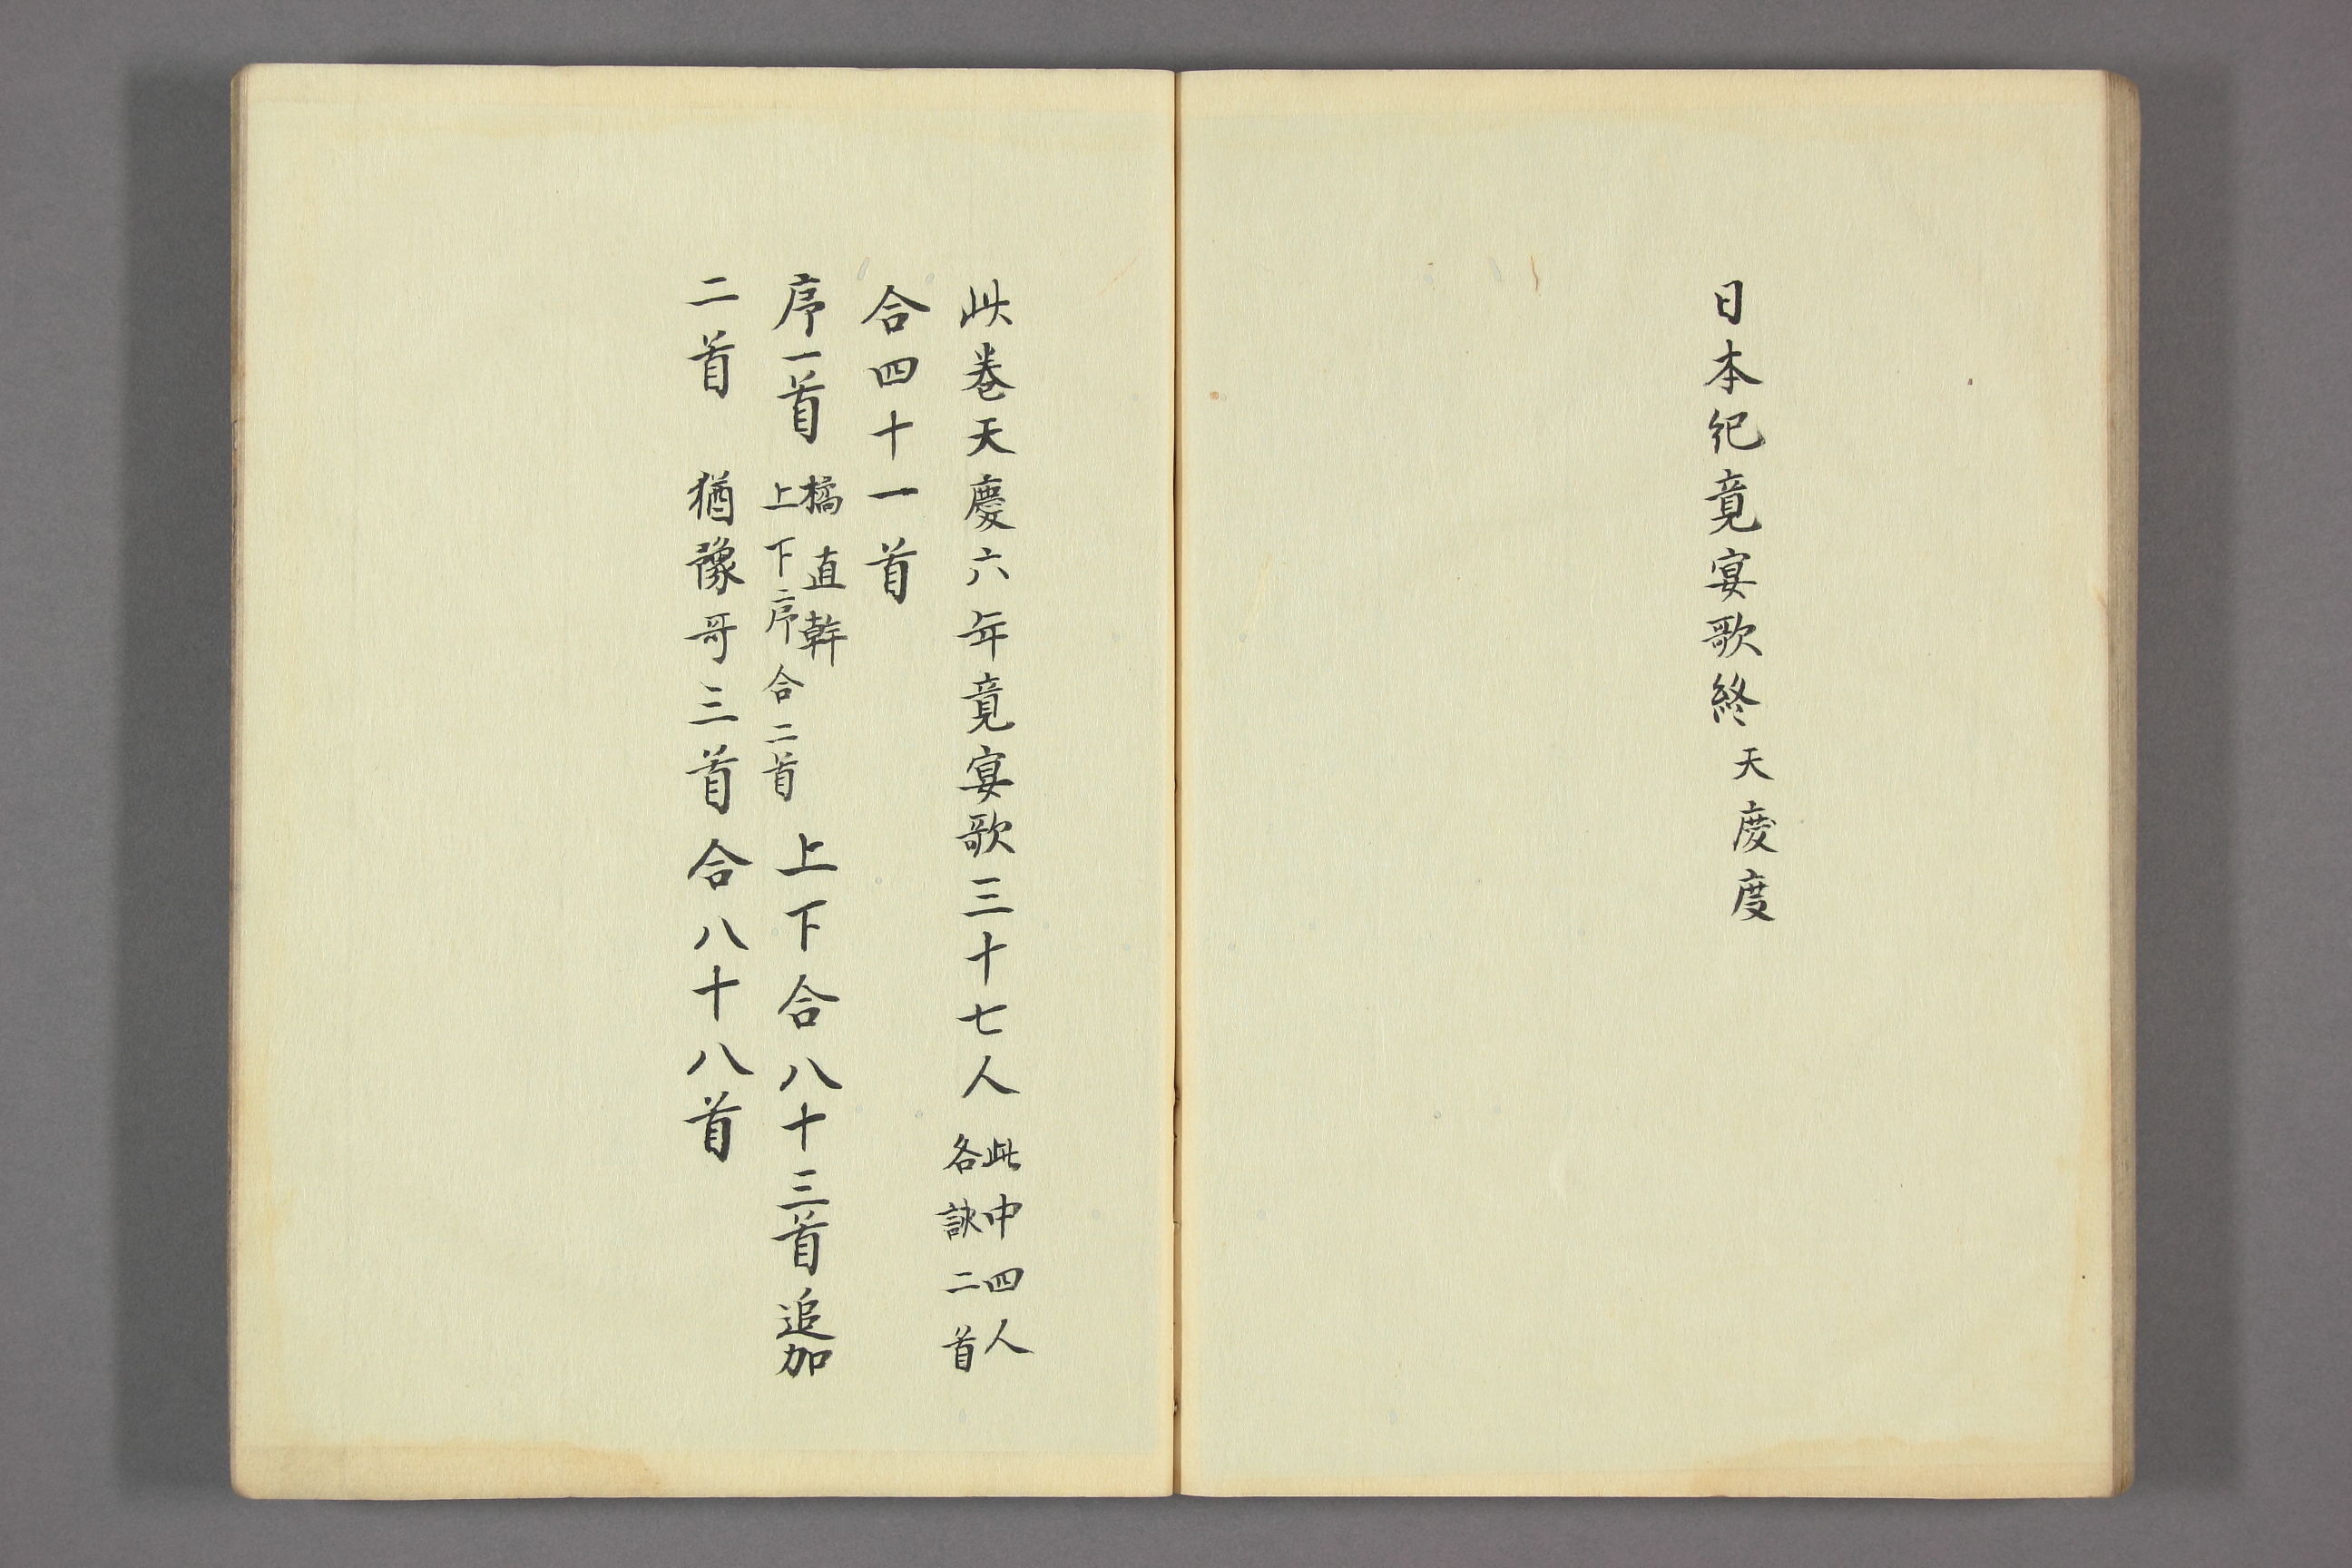 日本紀竟宴歌終天慶度
此巻天慶六年竟宴歌三十七人此中四人
各詠二首
合四十一首
序一首橘直幹
上下序合二首
上下合八十三首追加
二首 猶豫哥三首合八十八首